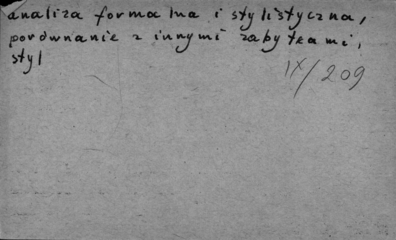 analiza formalna i stylistyczna,
porównanie z innymi zabytkami,
styl
IX/209